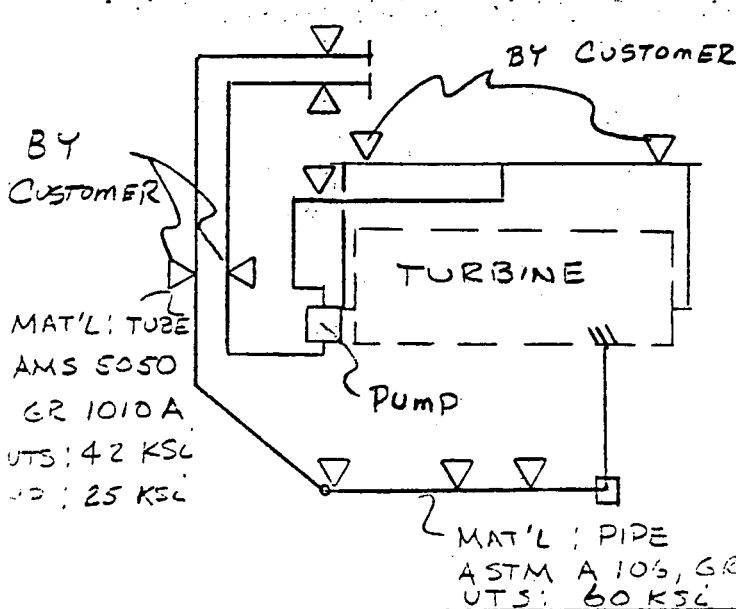 BY CUSTOMER
BY
CUSTOMER
TURBINE
MAT'L: TUBE
AMS 5050
GR 1010A
UTS: 42 KSi
: 25 KSi
PUMP
MAT'L: PIPE
ASTM A 106, GR
UTS: 60 KSi